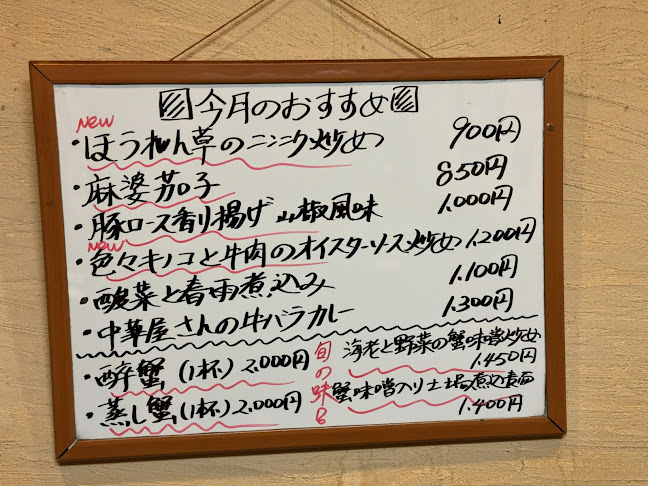 今月のおすすめ
New
・ほうれん草のニンニク炒め 900円
・麻婆茄子 850円
・豚ロース香り揚げ 山椒風味 1.000円
New
・色々キノコと牛肉のオイスターソース炒め 1.200円
・酸菜と春雨煮込み 1.100円
・中華屋さんの牛バラカレー 1.300円
・酔蟹(1杯)2.000円
・蒸し蟹(1杯)2.000円
旬の味
海老と野菜の蟹味噌炒め
1.450円
蟹味噌入り土鍋煮込み麺
1.400円